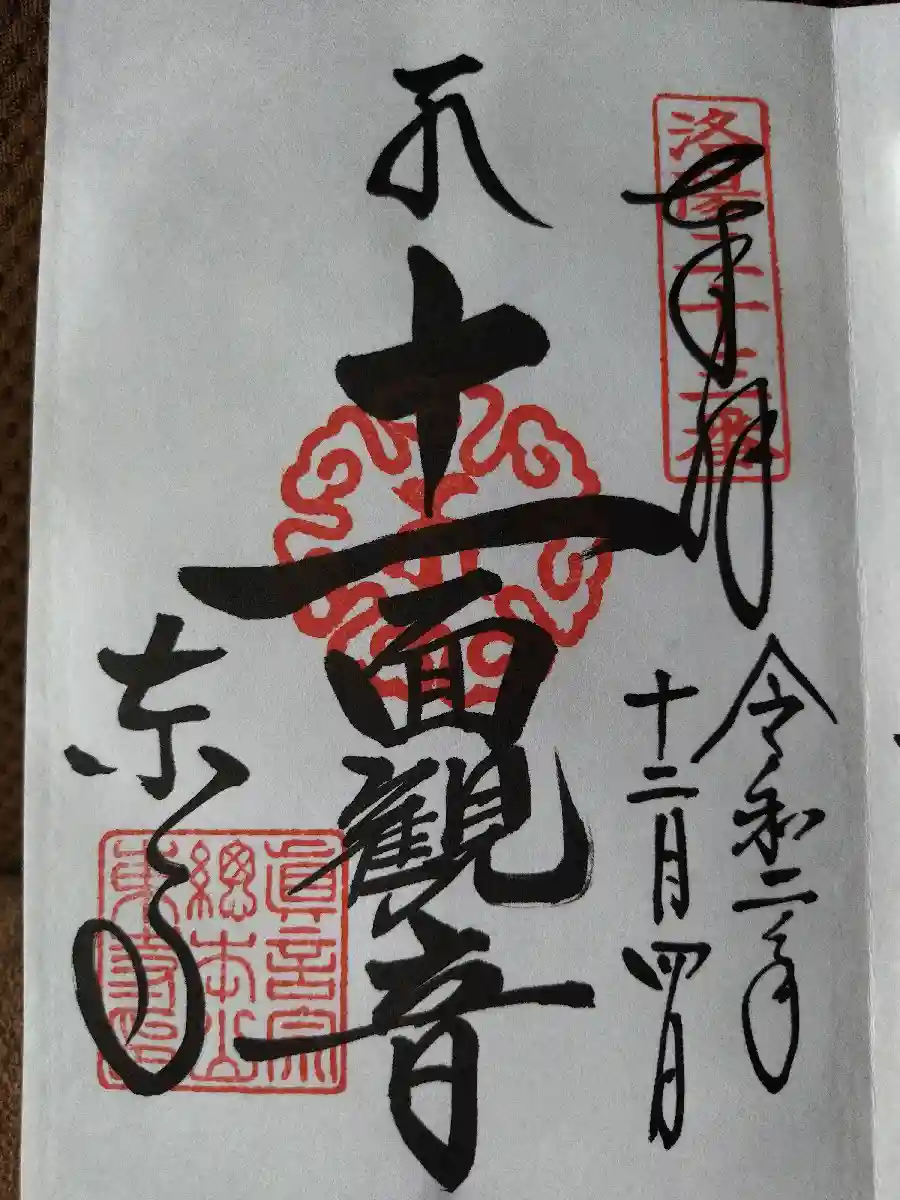 洛陽二十三番
奉拝
令和二年
十二月四日
十一面觀音
東寺
眞言宗
總本山
東寺